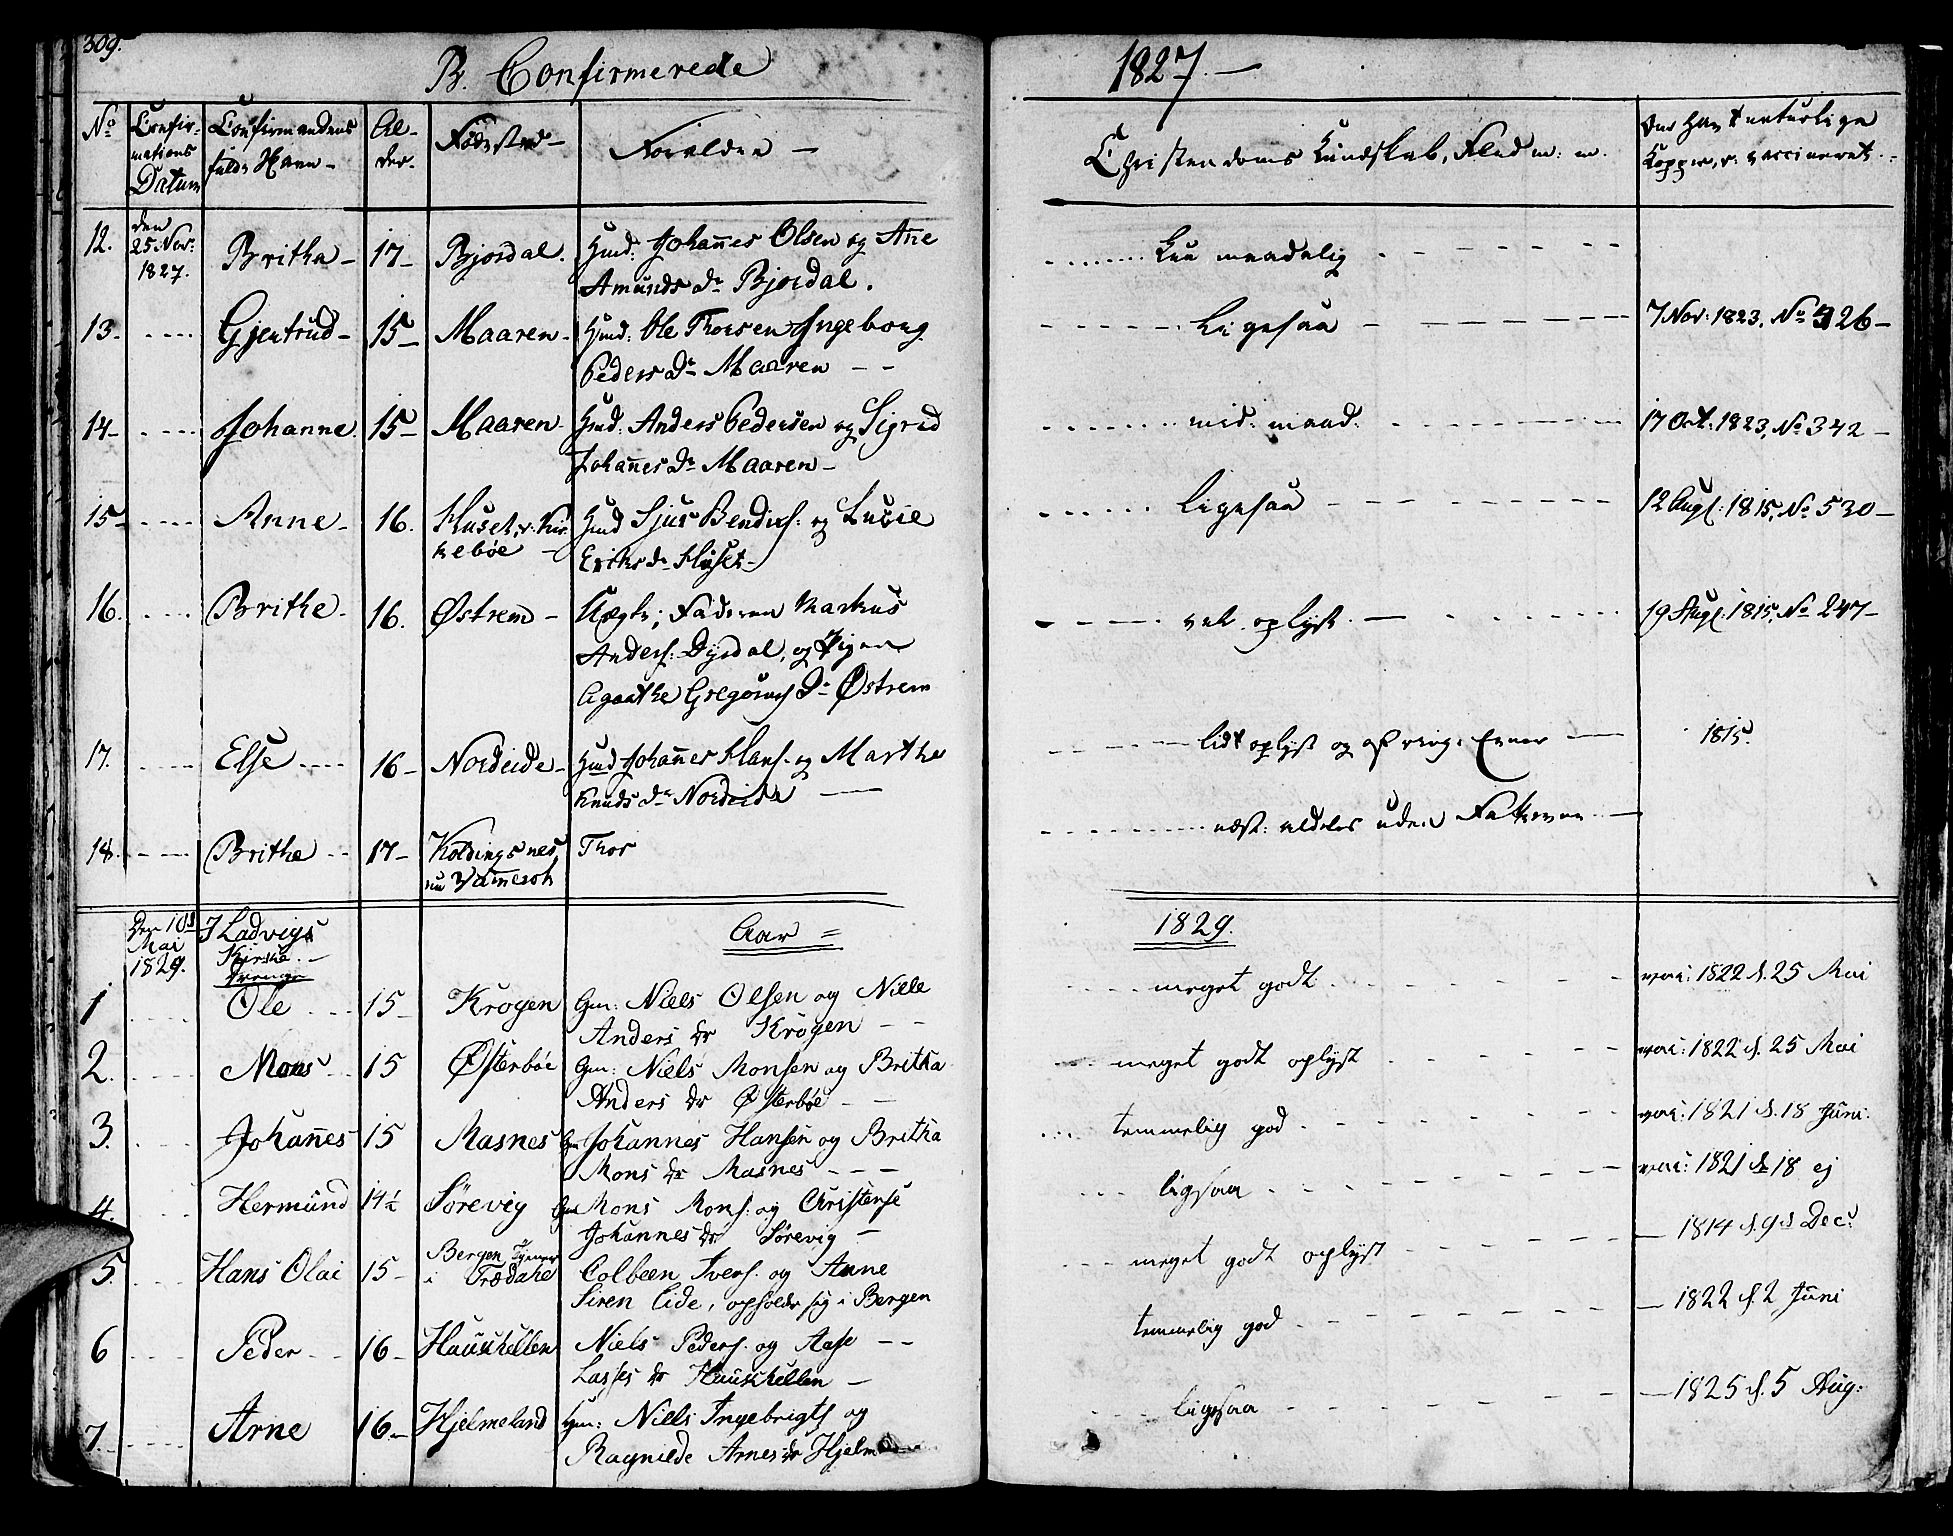 309.
B. Confirmerede 1827.
No Confirmations Datum
Confirmandens fulde Navn
Alder.
Fødested
Forældre
Christendoms Kundskab, Flid m: m.
Kopper, v: vaccineret
12. den 25 Nov: 1827. Britha 17 Bjordal. Gmd: Johan̄es Olsen og An̄e
Amunds Dr Bjordal.
13. Gjertrud 15 Maaren Gmd: Ole Thorsen Ingeborg
Peders Dr Maaren
Ligesaa 7 Nov: 1823. No 326
14 Johanne 15 Maaren Gmd: Anders Pedersen og Sigrid
Johan̄es Dr Maaren
mid: maad. 17 Oct: 1823, No 342
15 Anne 16. Huset, v: Kirkebøe Gmd Sjur Bendixs: og Lucie
Eriks Dr Huset
Ligesaa 12 Aug: 1815, No 530
16. Brithe 16. Østrem Uægte; Faderen Markus
Anders: Dysdal, og Pigen
Agaathe Gregorius Dr Østrem
vel oplyst. 19 Aug: 1815, No 247
17. Else 16 Nordeide Gmd Johan̄es Hans: og Marthe
Knuds Dr Nordeide
lidt oplyst og af ring: Evner 1815.
18. Brithe 17 Koldingsnes, Thor
næst: aldeles uden
Den 10d Mai 1829. I Ladvigs Kirke. Drenge Aar 1829.
1 Ole 15 Krogen Gm: Niels Olsen og Nille
Anders dr Krogen
meget godt vac: 1822 d. 25 Mai
2. Mons 15 Østerbøe Gm: Niels Monsen og Britha
Anders dr Østerbøe
meget godt oplyst vac: 1822 d. 25 Mai
3. Johan̄es 15 Masnes Gm Johannes Hansen og Britha
Mons dr Masnes
temmelig god vac: 1821 d. 18 Juni.
4. Hermund 14½ Sørevig Gm Mons Mons: og Christense
Johannes dr Sørevig
ligsaa vac: 1821 d 18 ej
5. Hans Olai 15 Bergen i Colbeen Ivers: og Anne
Siren Eide, opholdr sig i Bergen
meget godt oplyst 1814 d. 9d Dec:
6 Peder 16 Hauskellen Niels Peders: og Aase
Lasses dr Hauskellen
temmelig god 1822 d. 2 Juni
7. Arne 16 Hjelmeland Gm: Niels Ingebrigts og
Ragnilde Arnes dr Hjelm
ligesaa 1825 d. 5 Aug: